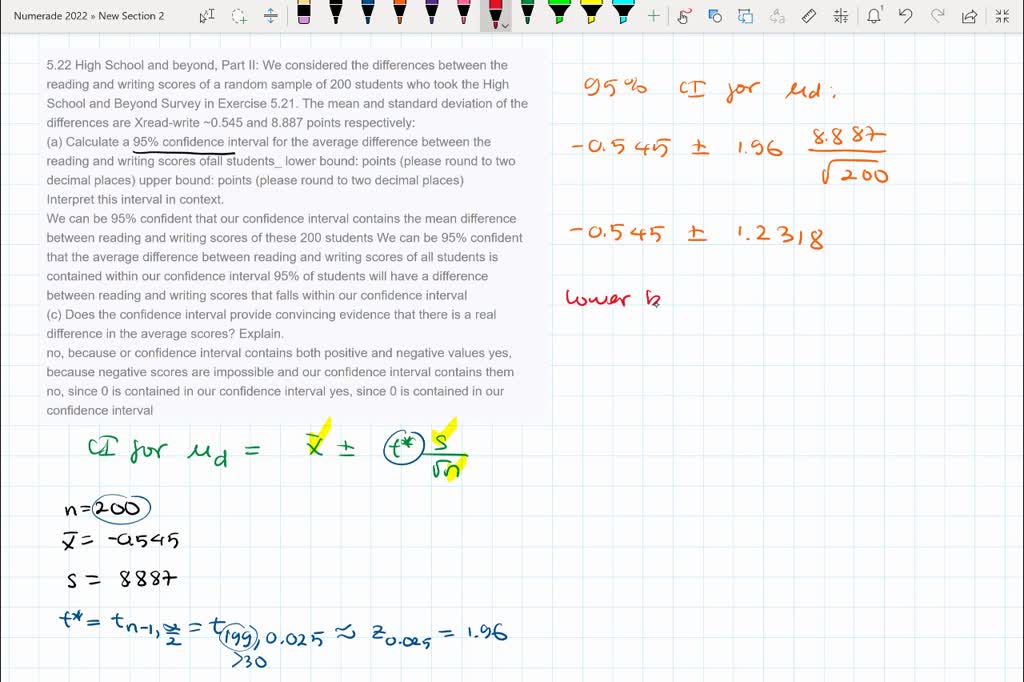 Numerade 2022 » New Section 2
5.22 High School and beyond, Part II: We considered the differences between the
reading and writing scores of a random sample of 200 students who took the High
School and Beyond Survey in Exercise 5.21. The mean and standard deviation of the
differences are Xread-write ~0.545 and 8.887 points respectively:
(a) Calculate a 95% confidence interval for the average difference between the
reading and writing scores ofall students_ lower bound: points (please round to two
decimal places) upper bound: points (please round to two decimal places)
Interpret this interval in context.
We can be 95% confident that our confidence interval contains the mean difference
between reading and writing scores of these 200 students We can be 95% confident
that the average difference between reading and writing scores of all students is
contained within our confidence interval 95% of students will have a difference
between reading and writing scores that falls within our confidence interval
(c) Does the confidence interval provide convincing evidence that there is a real
difference in the average scores? Explain.
no, because or confidence interval contains both positive and negative values yes,
because negative scores are impossible and our confidence interval contains them
no, since 0 is contained in our confidence interval yes, since 0 is contained in our
confidence interval
CI for μd = x̄ ± t* s/√n
n=200
x̄ = -0.545
s = 8887
t* = t n-1, α/2 = t 199, 0.025 ≈ z 0.025 = 1.96
>30
95% CI for μd:
-0.545 ± 1.96 8.887/√200
-0.545 ± 1.2318
lower b